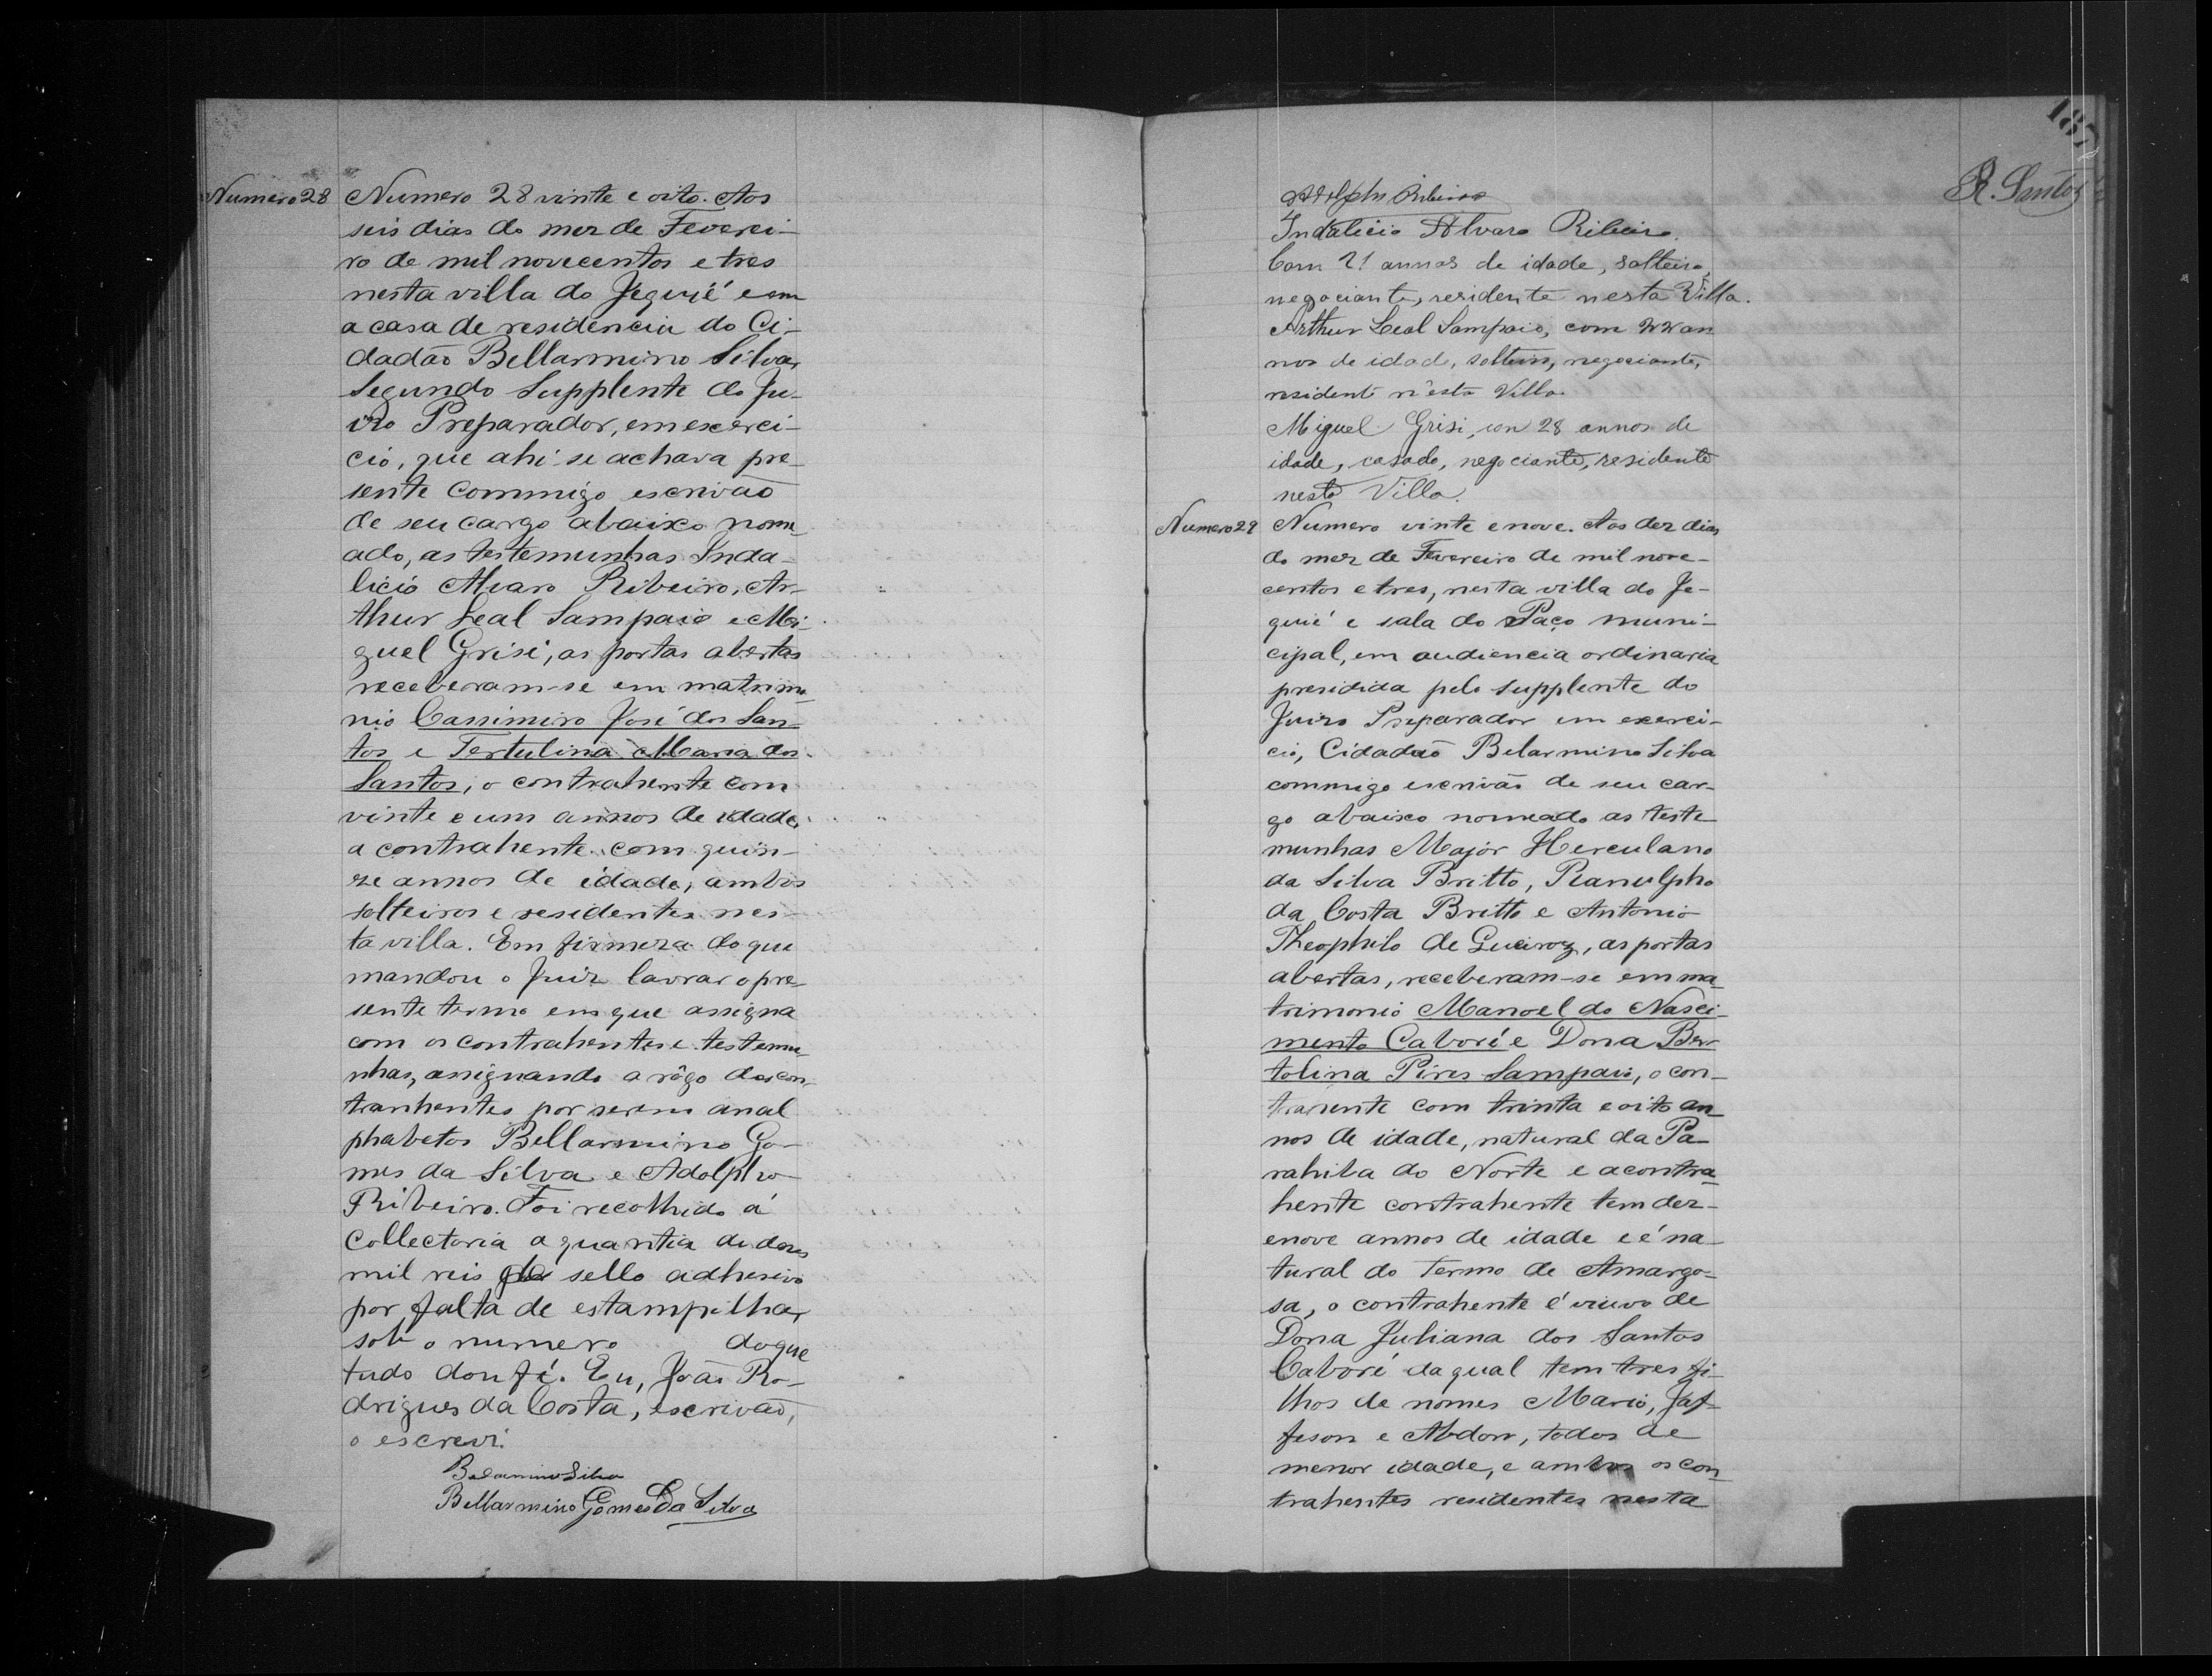 Numero 28
Numero 28 vinte e oito. Aos
seis dias do mez de Feverei-
ro de mil novecentos e tres
nesta villa do Jequié e em
a casa de residencia do Ci-
dadão Bellarmino Silva,
Segundo Supplente do Ju-
izo Preparador, em exerci-
cio, que ahi se achava pre-
sente commigo escrivão
de seu cargo abaixo nome-
ado, as testemunhas Inda-
licio Alvaro Ribeiro, Ar-
thur Leal Sampaio e Mi-
guel Grisi, as portas abertas
receberam-se em matrimo-
nio Cassimiro José dos San-
tos e Tertulina Maria dos
Santos, o contrahente com
vinte e um annos de idade,
a contrahente com quin-
ze annos de idade, ambos
solteiros e residentes nes-
ta villa. Em firmeza do que
mandou o Juiz lavrar o pre-
sente termo em que assigna
com os contrahentes e testemu-
nhas, assignando a rôgo dos con-
tranhentes por serem anal
phabetos Bellarmino Go-
mes da Silva e Adolpho
Ribeiro. Foi recolhido á
Collectoria a quantia de
mil reis sello adhesivo
por falta de estampilha,
sob o numero do que
tudo dou fé. Eu, João Ro-
drigues da Costa, escrivão,
o escrevi.
Belarmino Silva
Bellarmino Gomes Da Silva
187
R. Santos
Adolpho Ribeiro
Indalicio Alvaro Ribeiro.
Com 21 annos de idade, solteiro,
negociante, residente nesta Villa.
Arthur Leal Sampaio, com 22 an
nos de idade, solteiro, negociante,
residente n'esta Villa.
Miguel Grisi, con 28 annos de
idade, casado, negociante, residente
nesta Villa.
Numero 29
Numero vinte e nove. Aos dez dias
do mez de Fevereiro de mil nove-
centos e tres, nesta villa do Je-
quié e sala do Paço muni-
cipal, em audiencia ordinaria
presidida pelo supplente do
Juizo Preparador em exerci-
cio, Cidadão Belarmino Silva
commigo escrivão de seu car-
go abaixo nomeado as teste
munhas Major Herculano
da Silva Britto, Ranulpho
da Costa Britto e Antonio
Theophilo de Queiroz, as portas
abertas, receberam-se em ma-
trimonio Manoel do Nasci-
mento Caboré e Dona Ber-
tolina Pires Sampaio, o con-
trahente com trinta e oito an-
nos de idade, natural da Pa-
rahiba do Norte e a contra-
hente contrahente tem dez-
enove annos de idade e é na-
tural do Termo de Amargo-
sa, o contrahente é viuvo de
Dona Juliana dos Santos
Caboré da qual tem tres fi-
lhos de nomes Mario, Jaf-
feson e Abdon, todos de
menor idade, e ambos os con-
trahentes residentes nesta